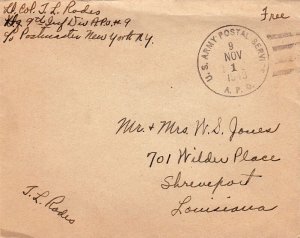 Lt. Col. T. L. Rodes
Hq. 9th Inf Div A.P.O. # 9
c/o Postmaster New York N.Y.
Free
U. S. ARMY POSTAL SERV
9
NOV
1
A. P. O.
Mr. & Mrs W. S. Jones
701 Wilder Place
Shreveport
Louisiana
T. L. Rodes